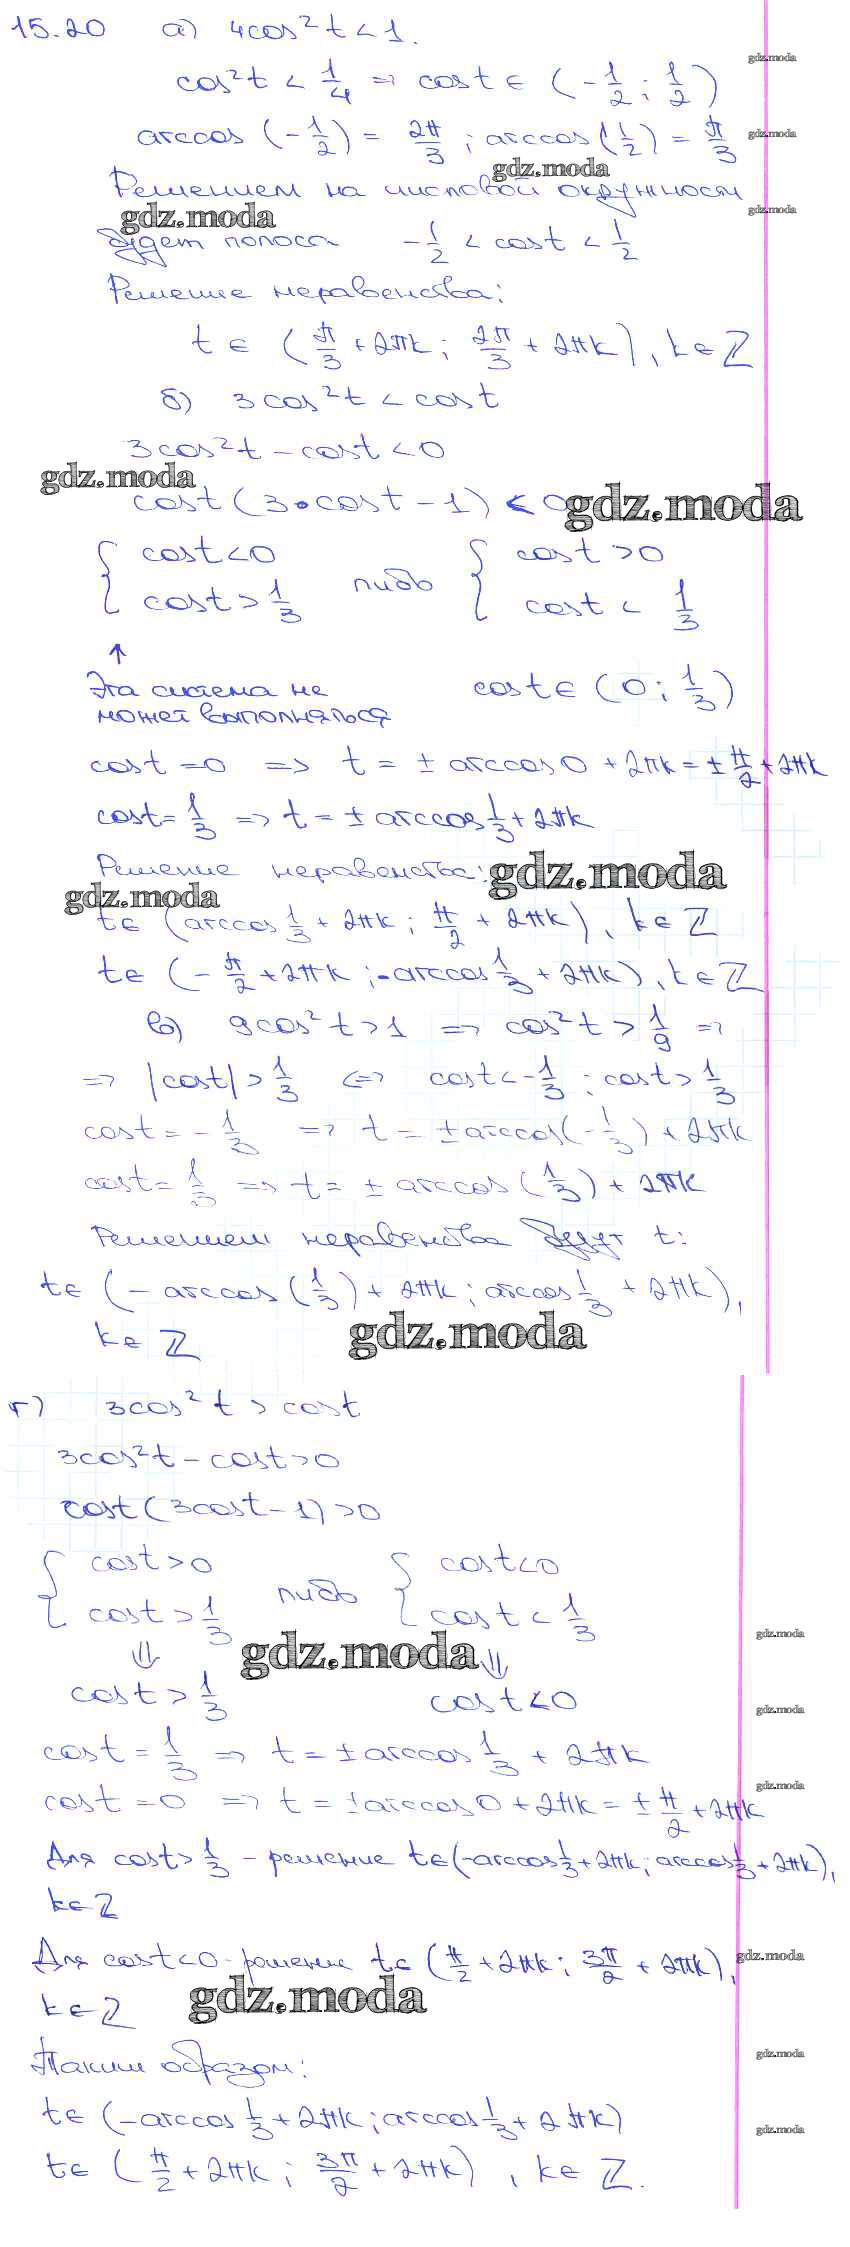 15.20 а) 4cos²t < 1.
cos²t < 1/4 => cost ∈ (-1/2; 1/2)
gdz.moda
arccos(-1/2) = 2π/3 ; arccos(1/2) = π/3
gdz.moda
gdz.moda
Решением на числовой окружности
gdz.moda
gdz.moda
будет полоса -1/2 < cost < 1/2
Решение неравенства:
t ∈ (π/3 + 2πk; 2π/3 + 2πk), k ∈ Z
б) 3cos²t < cost
3cos²t - cost < 0
gdz.moda
cost(3·cost - 1) < 0
gdz.moda
{ cost < 0 либо { cost > 0
cost > 1/3 cost < 1/3
↑
Эта система не cost ∈ (0; 1/3)
может выполняться
cost = 0 => t = ± arccos0 + 2πk = ± π/2 + 2πk
cost = 1/3 => t = ± arccos 1/3 + 2πk
Решение неравенства:
gdz.moda
gdz.moda
t ∈ (arccos 1/3 + 2πk; π/2 + 2πk), k ∈ Z
t ∈ (-π/2 + 2πk; -arccos 1/3 + 2πk), k ∈ Z
в) 9cos²t > 1 => cos²t > 1/9 =>
=> |cost| > 1/3 <=> cost < -1/3 ; cost > 1/3
cost = -1/3 => t = ± arccos(-1/3) + 2πk
cost = 1/3 => t = ± arccos(1/3) + 2πk
Решением неравенства будут t:
t ∈ (-arccos(1/3) + 2πk; arccos 1/3 + 2πk),
k ∈ Z
gdz.moda
г) 3cos²t > cost
3cos²t - cost > 0
cost(3cost - 1) > 0
{ cost > 0 либо { cost < 0
cost > 1/3 cost < 1/3
gdz.moda
⇓ gdz.moda ⇓
cost > 1/3 cost < 0
gdz.moda
cost = 1/3 => t = ± arccos 1/3 + 2πk
gdz.moda
cost = 0 => t = ± arccos0 + 2πk = ± π/2 + 2πk
Для cost > 1/3 - решение t ∈ (-arccos 1/3 + 2πk; arccos 1/3 + 2πk),
k ∈ Z
Для cost < 0 - решение t ∈ (π/2 + 2πk; 3π/2 + 2πk),
gdz.moda
k ∈ Z
gdz.moda
Таким образом:
gdz.moda
t ∈ (-arccos 1/3 + 2πk; arccos 1/3 + 2πk)
gdz.moda
t ∈ (π/2 + 2πk; 3π/2 + 2πk), k ∈ Z.